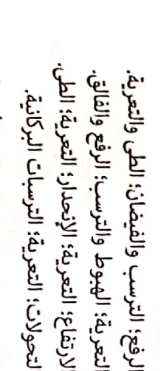 الرفع؛ الترسب والفيضان؛ الطي والتعرية.
التعرية؛ الهبوط والترسب؛ الرفع والفالق.
الارتفاع؛ التعرية؛ الإنحدار؛ التعرية؛ الطي.
التحولات؛ التعرية؛ الترسبات البركانية.